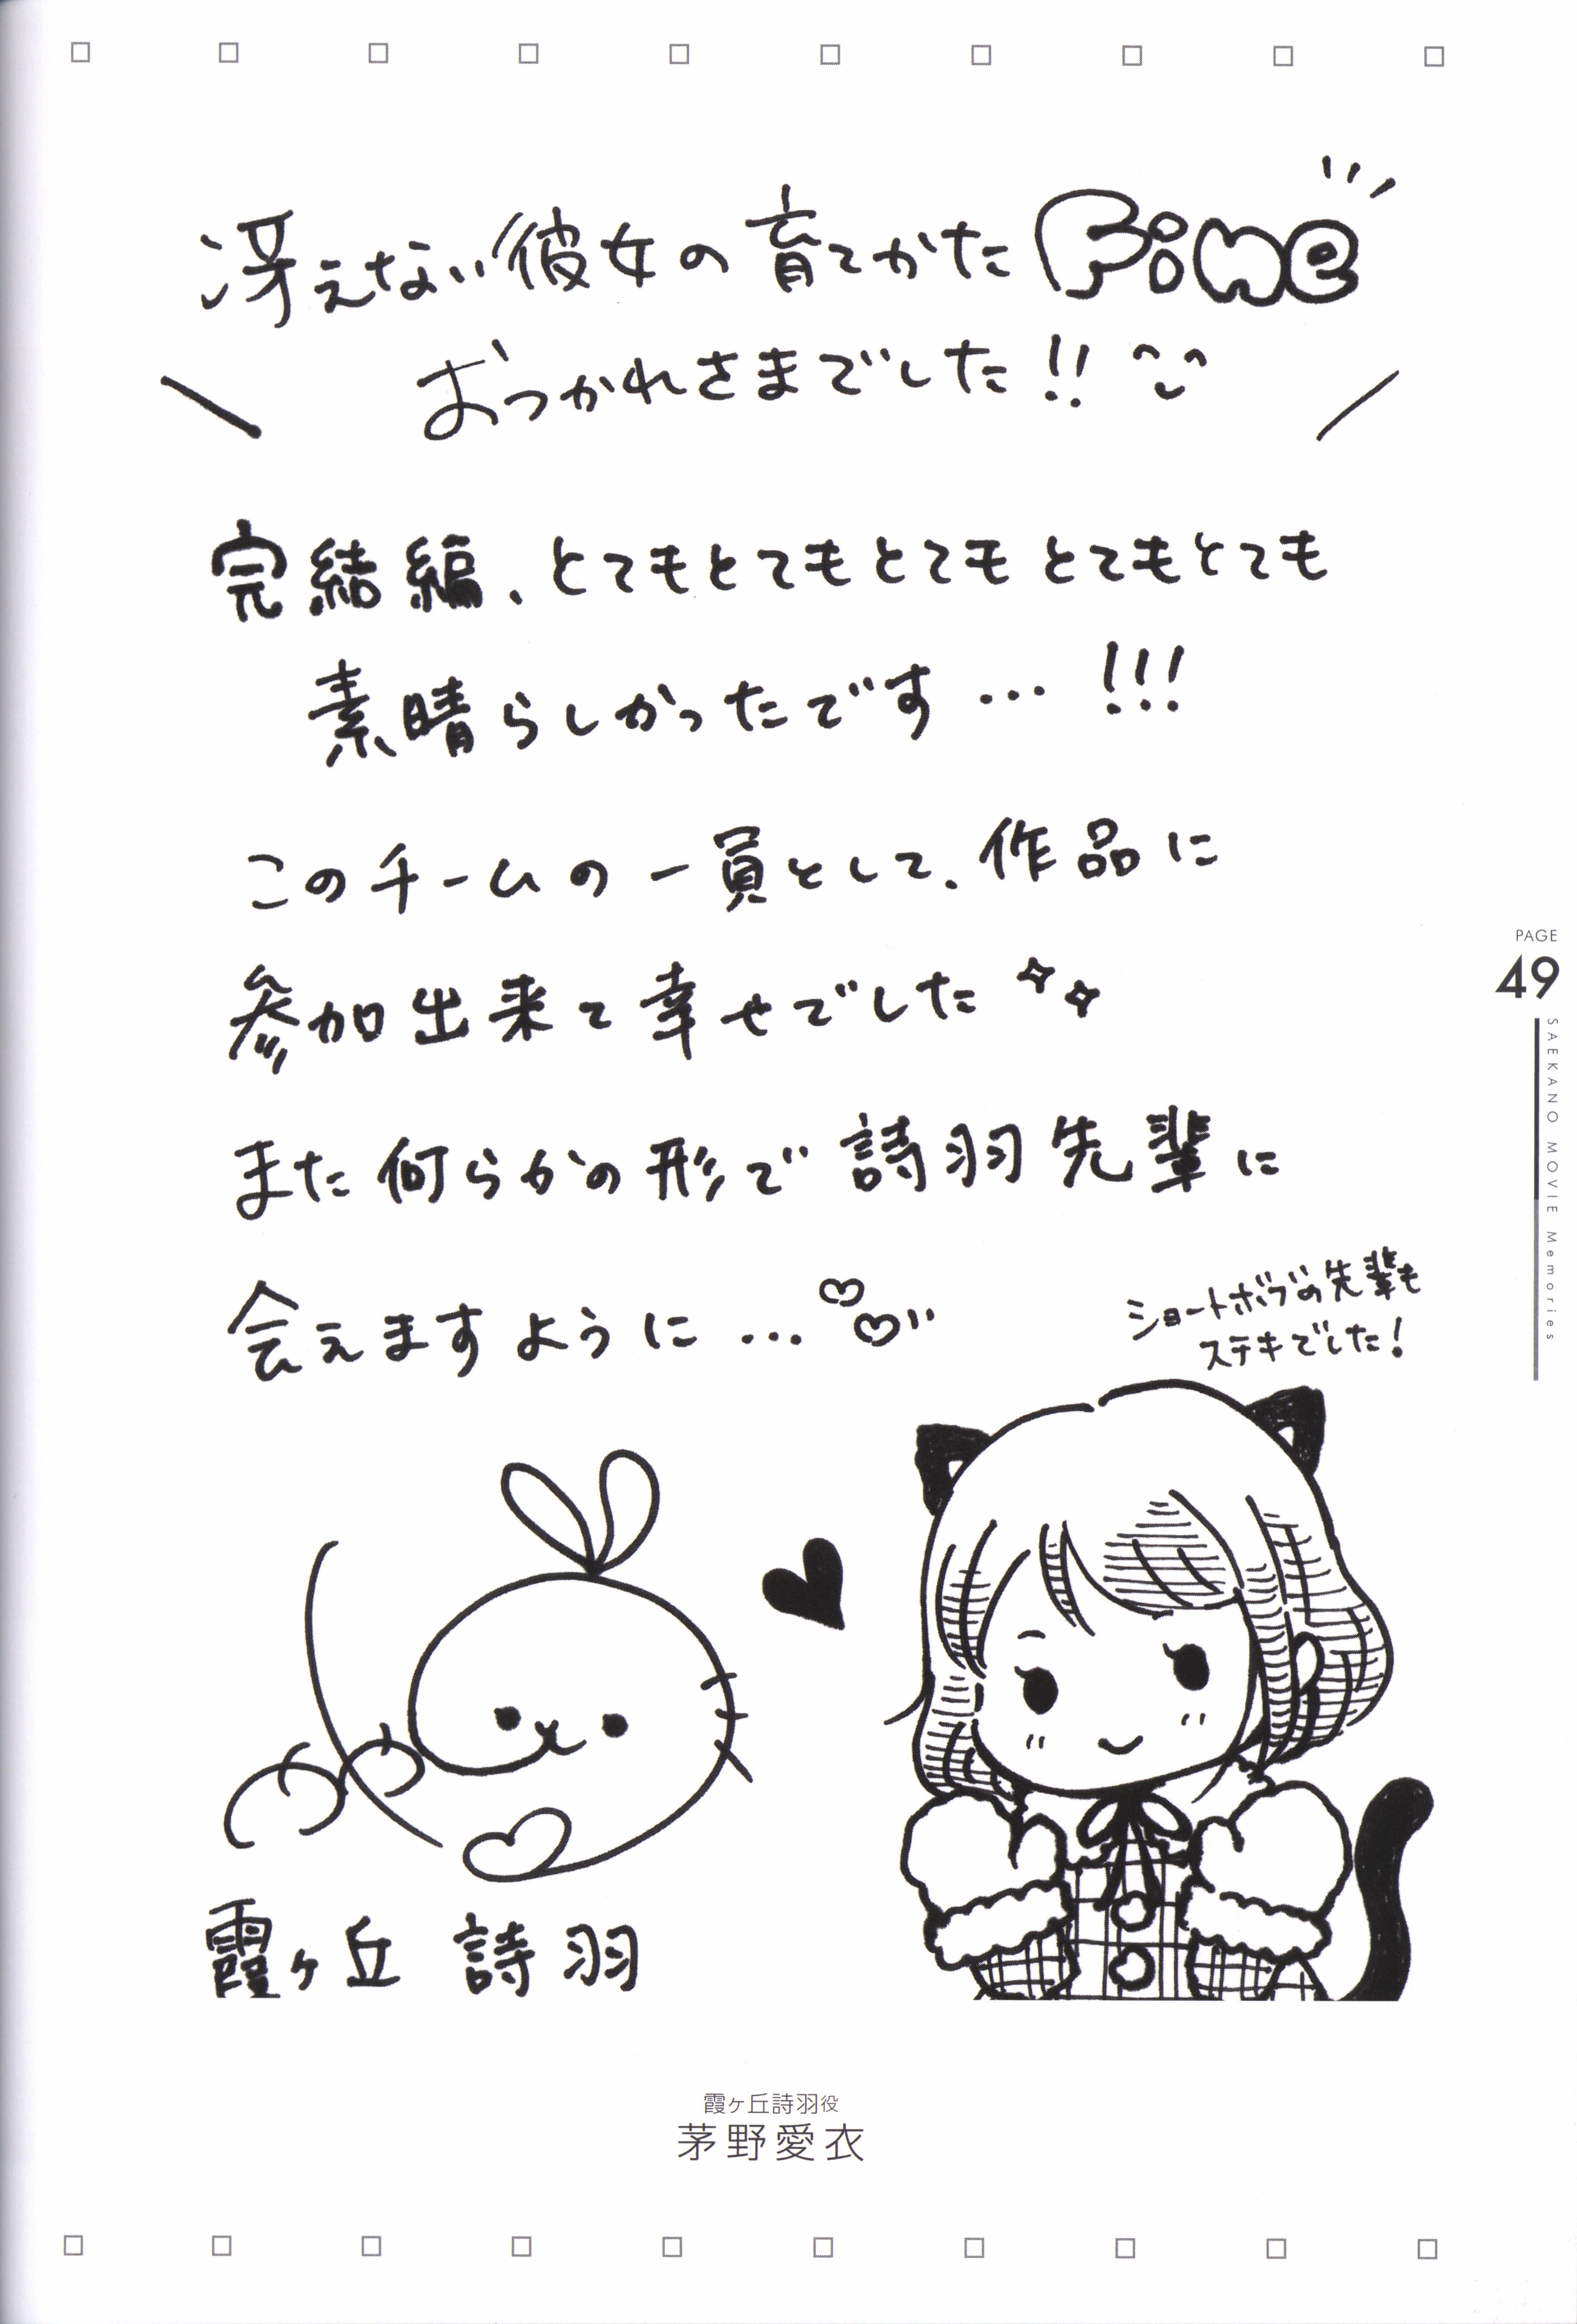 冴えない彼女の育てかた Fine
おつかれさまでした!!
完結編、とてもとてもとてもとてもとても
素晴らしかったです…!!!
このチームの一員として、作品に
参加出来て幸せでした
また何らかの形で詩羽先輩に
会えますように…
ショートボブの先輩も
ステキでした!
霞ヶ丘 詩羽
霞ヶ丘詩羽役
茅野愛衣
PAGE
49
SAEKANO MOVIE Memories